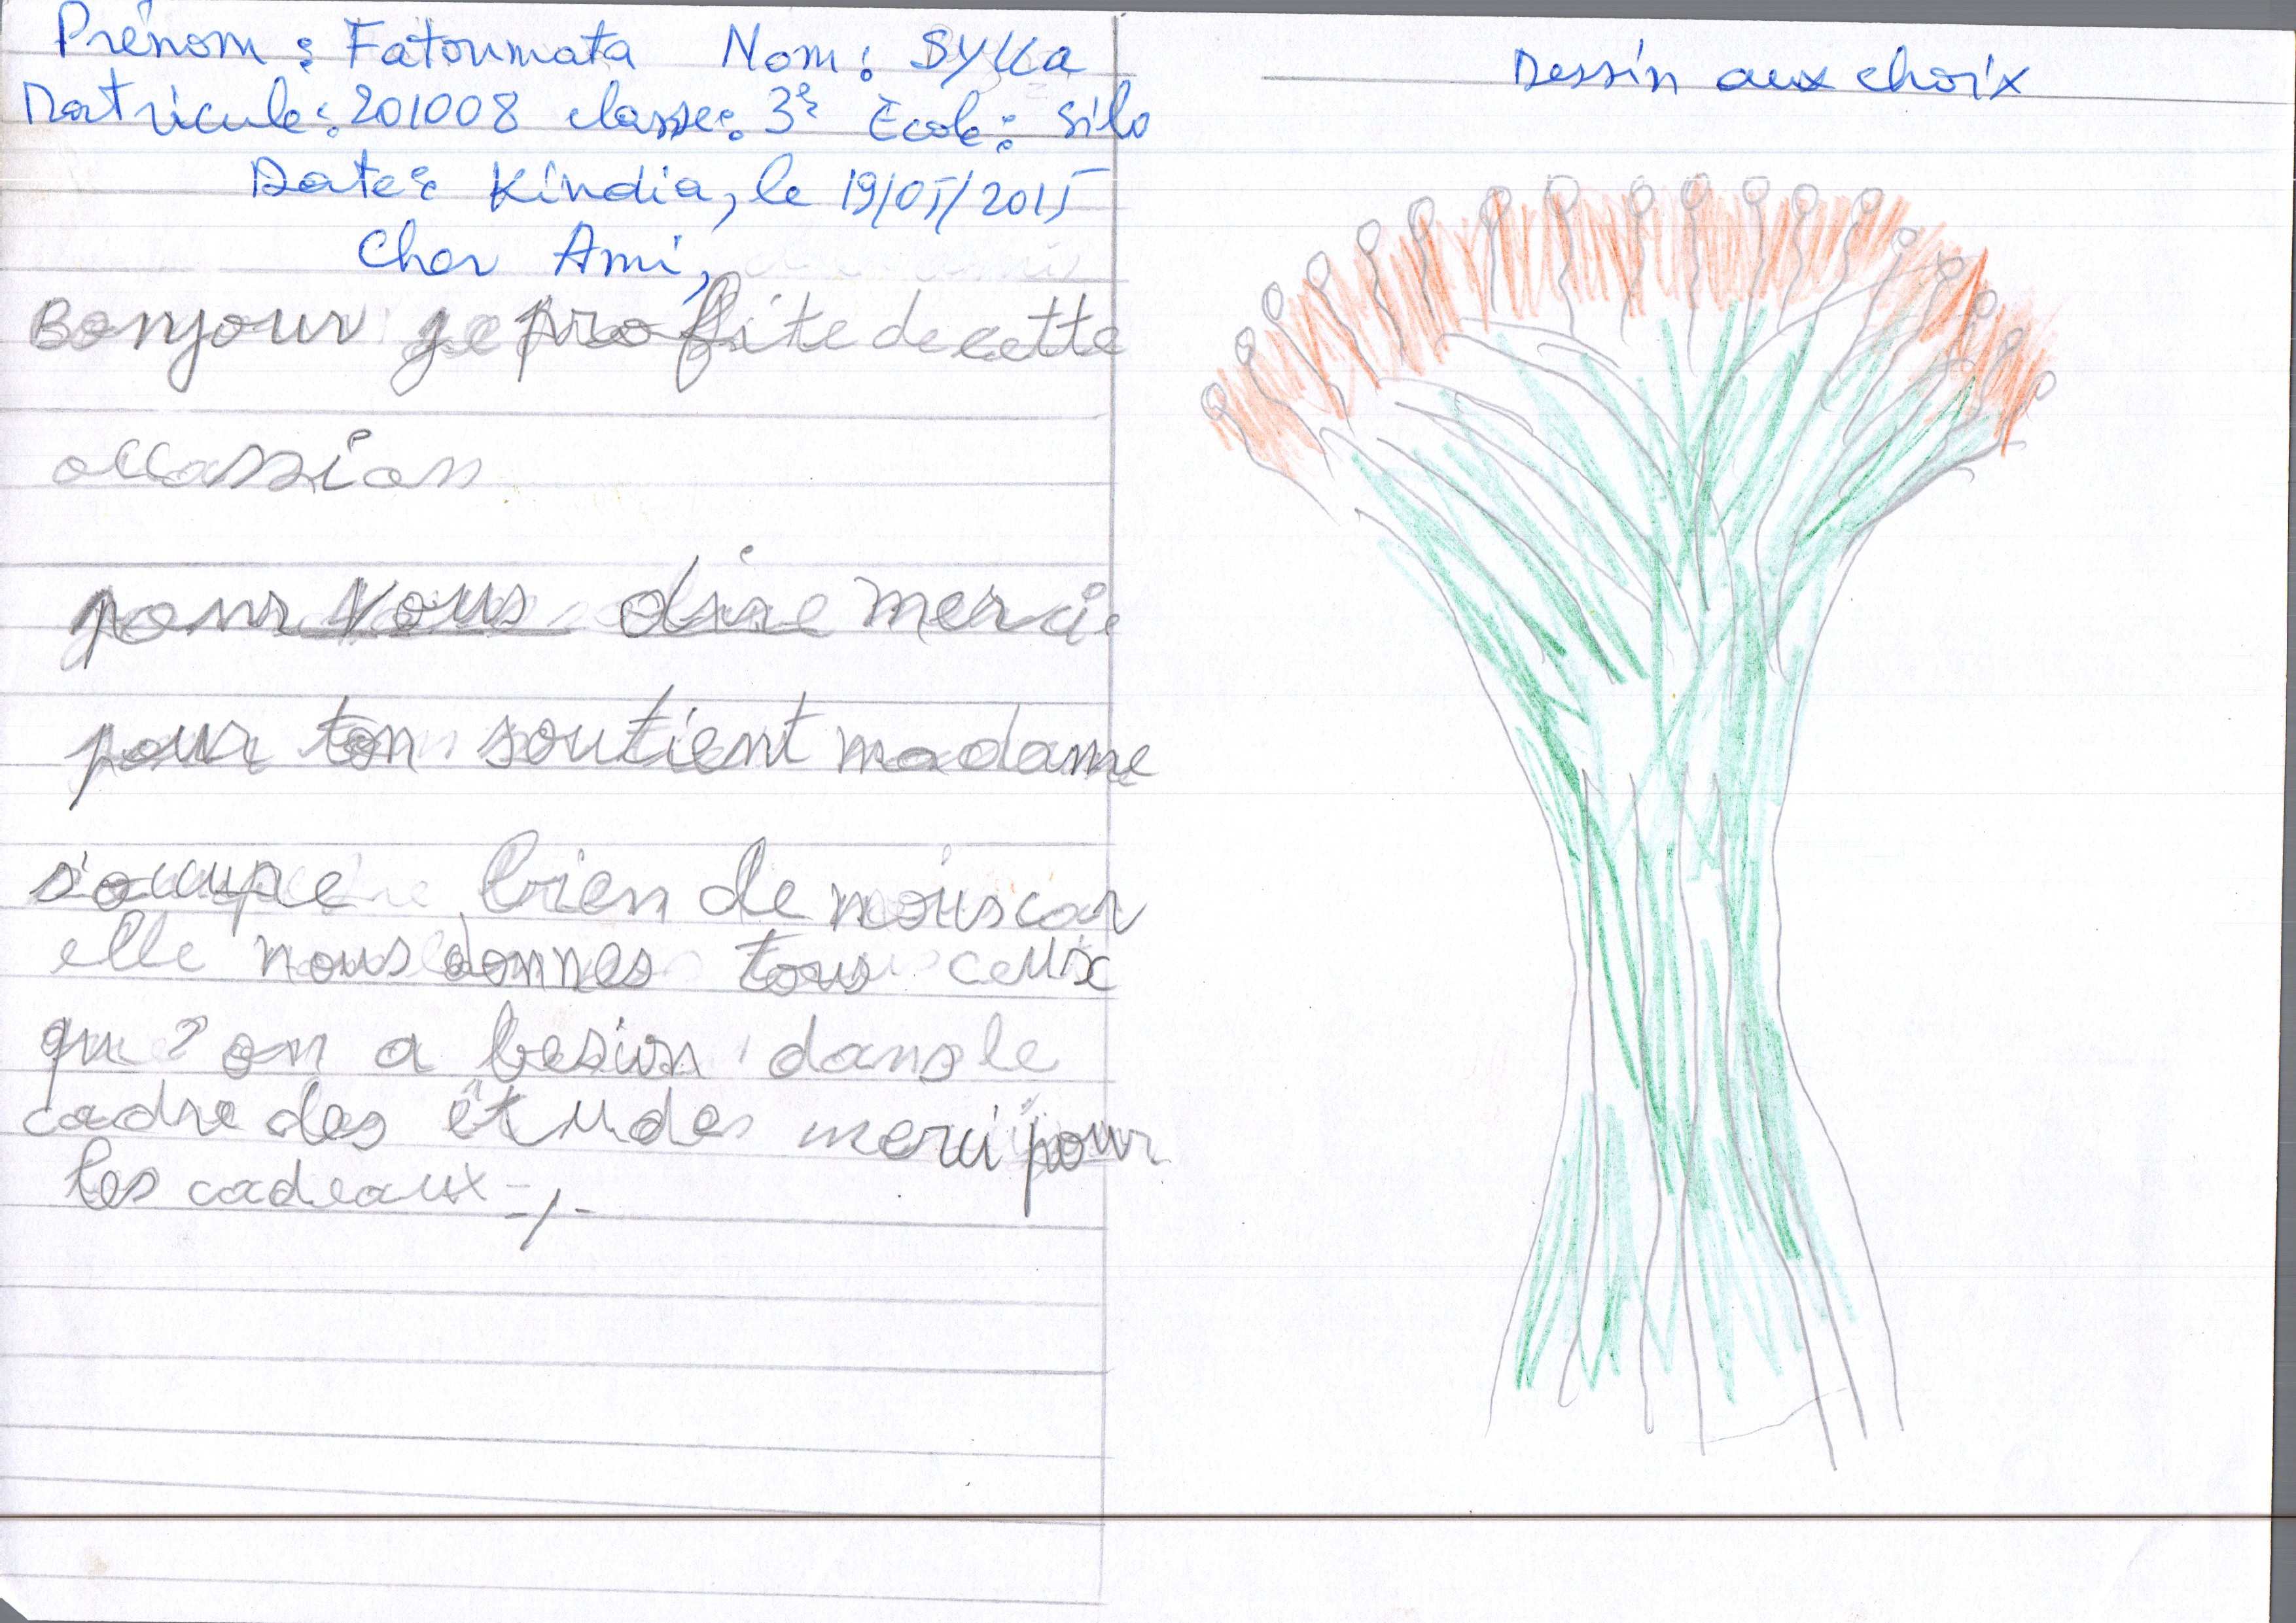 Prénom : Fatoumata Nom : SYlla
Matricule : 201008 classe : 3è École : Silo
Date : Kindia, le 19/05/2015
Cher Ami,
Bonjour je profite de cette
occassion
pour vous dire mercie
pour ton soutient madame
s'occupe bien de nous car
elle nous donnes tous ceux
qu'on a besion dans le
cadre des études merci pour
les cadeaux -,-
Dessin aux choix